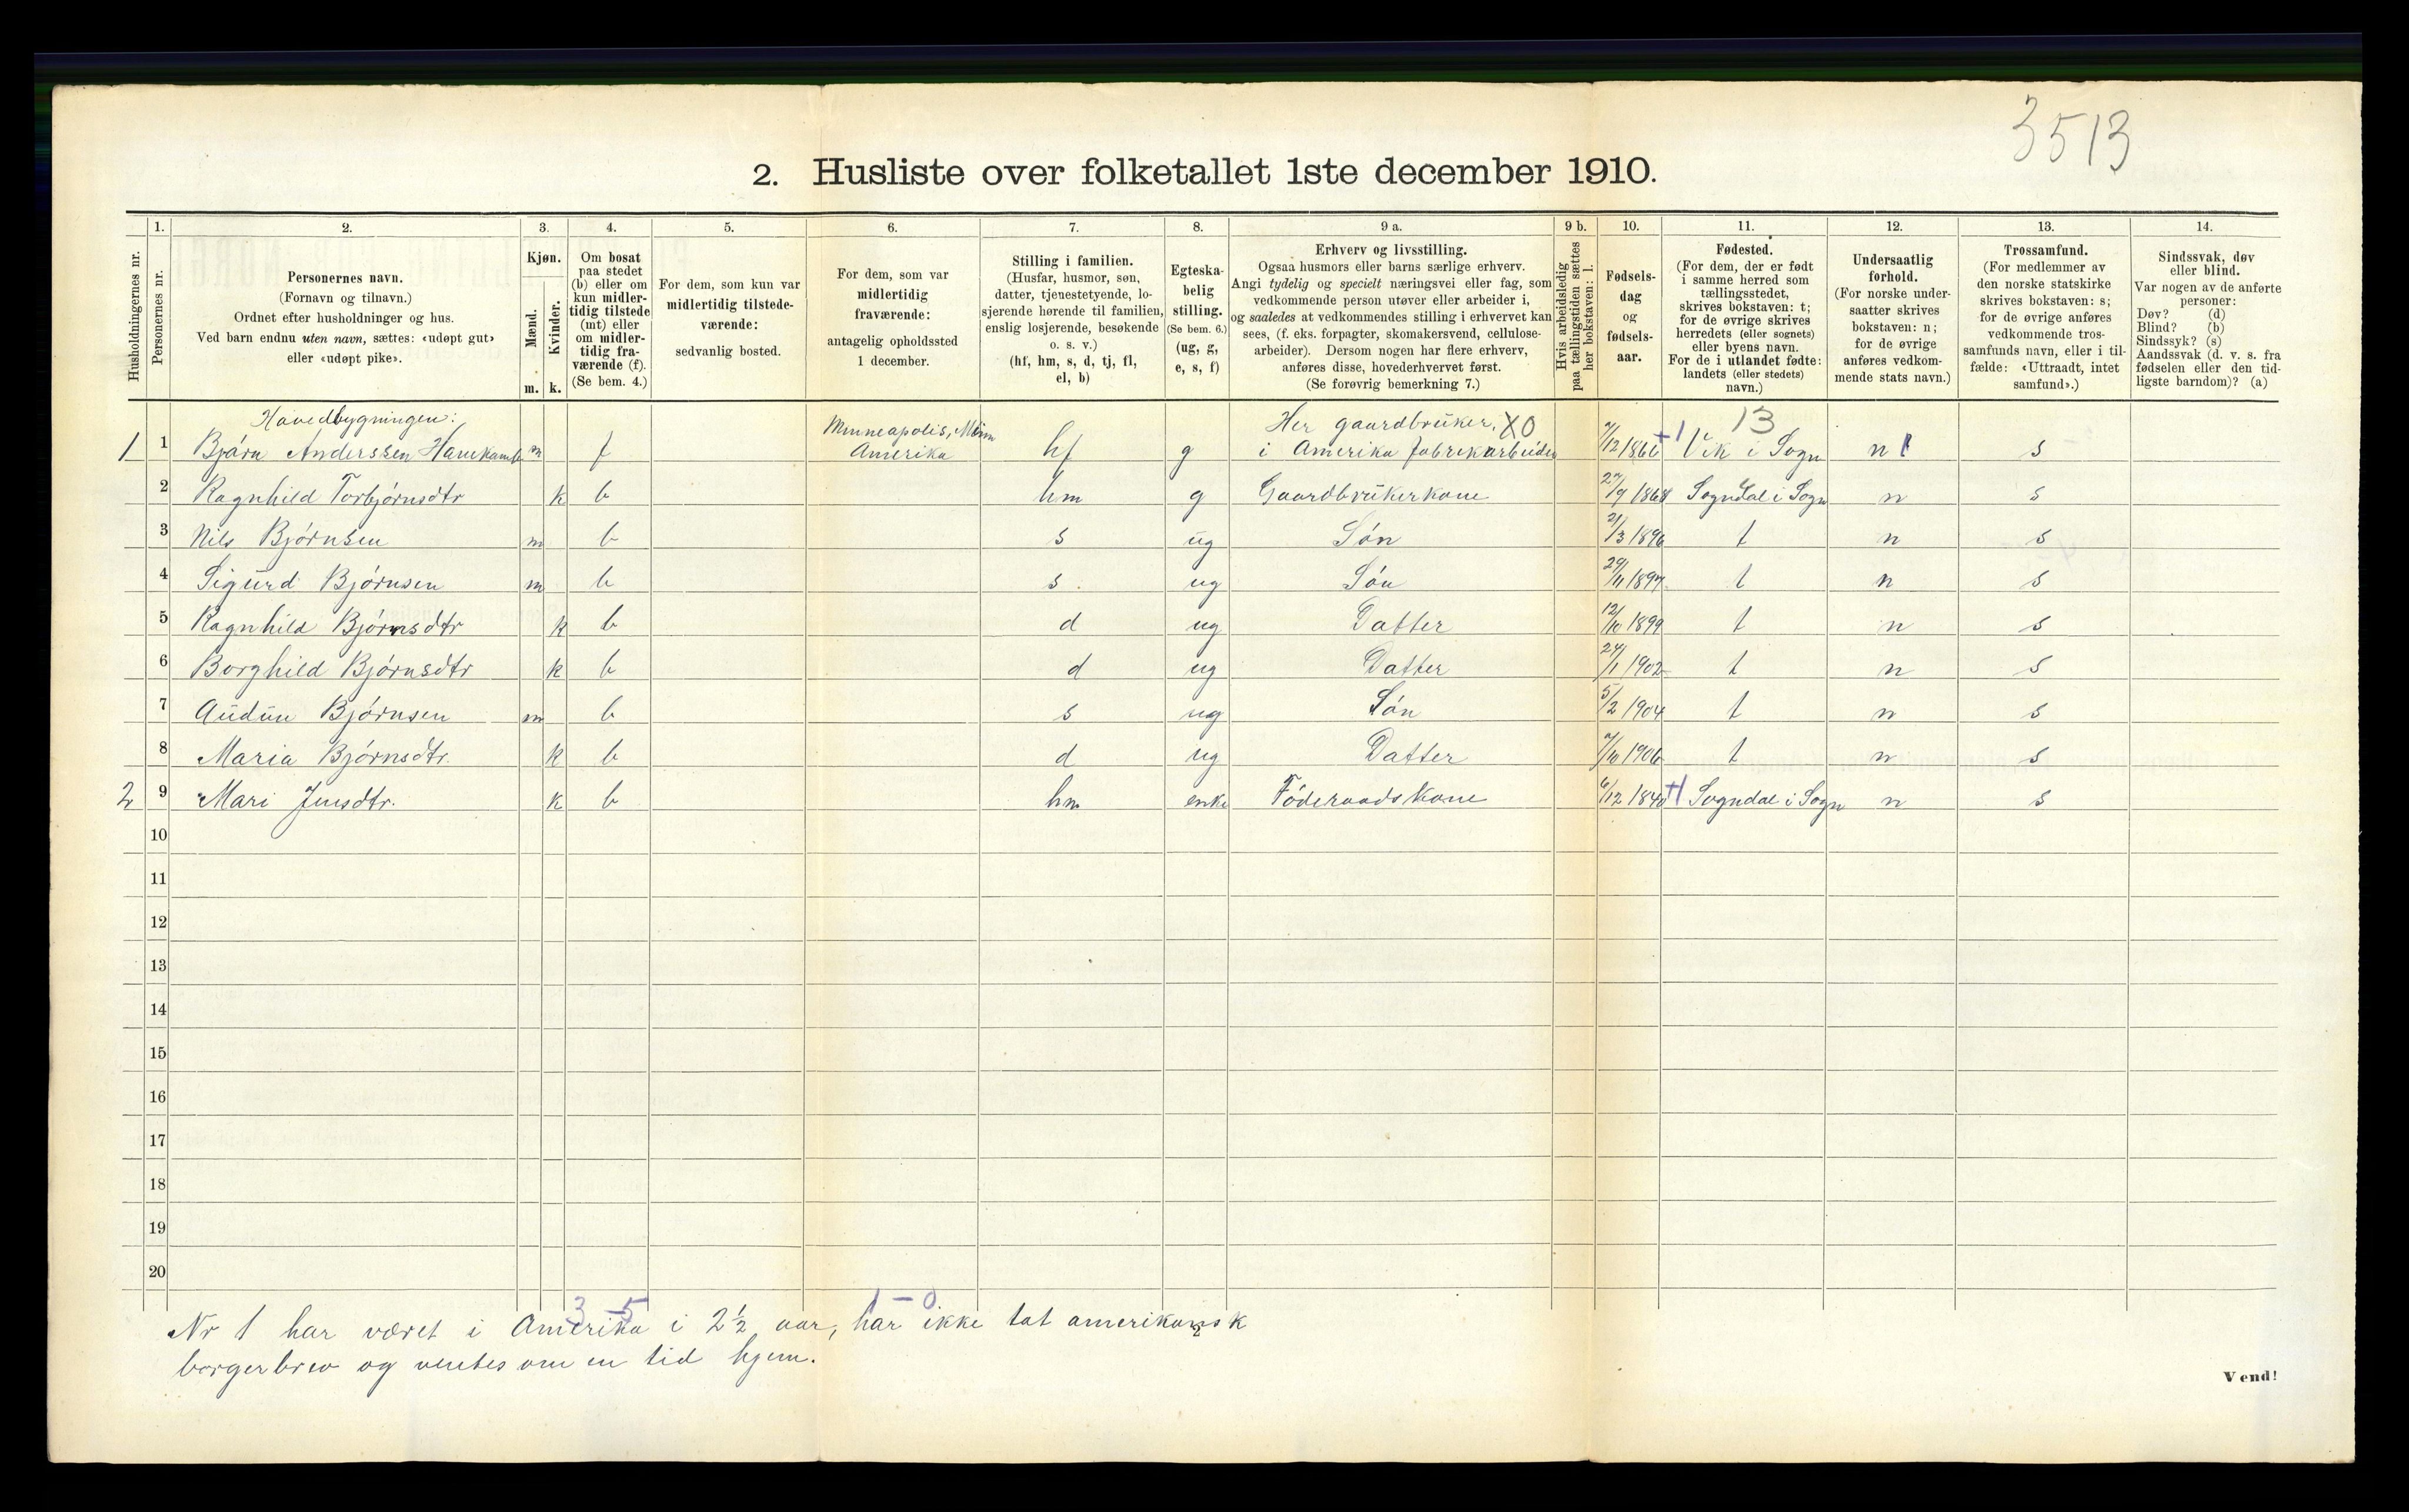 3513
2. Husliste over folketallet 1ste december 1910.
Husholdningernes nr.
1. Personernes nr.
2. Personernes navn.
(Fornavn og tilnavn.)
Ordnet efter husholdninger og hus.
Ved barn endnu uten navn, sættes: «udøpt gut»
eller «udøpt pike».
3. Kjøn.
Mænd. m.
Kvinder. k.
4. Om bosat
paa stedet
(b) eller om
kun midler-
tidig tilstede
(mt) eller
om midler-
tidig fra-
værende (f).
(Se bem. 4.)
5. For dem, som kun var
midlertidig tilstede-
værende:
sedvanlig bosted.
6. For dem, som var
midlertidig
fraværende:
antagelig opholdssted
1 december.
7. Stilling i familien.
(Husfar, husmor, søn,
datter, tjenestetyende, lo-
sjerende hørende til familien,
enslig losjerende, besøkende
o. s. v.)
(hf, hm, s, d, tj, fl,
el, b)
8. Egteska-
belig
stilling.
(Se bem. 6.)
(ug, g,
e, s, f)
9 a. Erhverv og livsstilling.
Ogsaa husmors eller barns særlige erhverv.
Angi tydelig og specielt næringsvei eller fag, som
vedkommende person utøver eller arbeider i,
og saaledes at vedkommendes stilling i erhvervet kan
sees, (f. eks. forpagter, skomakersvend, cellulose-
arbeider). Dersom nogen har flere erhverv,
anføres disse, hovederhvervet først.
(Se forøvrig bemerkning 7.)
9 b. Hvis arbeidsledig
paa tællingstiden sættes
her bokstaven: l.
10. Fødsels-
dag
og
fødsels-
aar.
11. Fødested.
(For dem, der er født
i samme herred som
tællingsstedet,
skrives bokstaven: t;
for de øvrige skrives
herredets (eller sognets)
eller byens navn.
For de i utlandet fødte:
landets (eller stedets)
navn.)
12. Undersaatlig
forhold.
(For norske under-
saatter skrives
bokstaven: n;
for de øvrige
anføres vedkom-
mende stats navn.)
13. Trossamfund.
(For medlemmer av
den norske statskirke
skrives bokstaven: s;
for de øvrige anføres
vedkommende tros-
samfunds navn, eller i til-
fælde: «Uttraadt, intet
samfund».)
14. Sindssvak, døv
eller blind.
Var nogen av de anførte
personer:
Døv? (d)
Blind? (b)
Sindssyk? (s)
Aandssvak (d. v. s. fra
fødselen eller den tid-
ligste barndom)? (a)
Hovedbygningen: Minneapolis, Minn Her gaardbruker, X0 13
1 1 Bjørn Anderssen Hanekamb m f Amerika hf g i Amerika fabrikarbeider 7/12 1866 +1 Vik i Sogn n 1 s
2 Ragnhild Torbjørnsdtr k b hm g Gaardbrukerkone 27/9 1868 Sogndal i Sogn n s
3 Nils Bjørnsen m b s ug Søn 21/3 1896 t n s
4 Sigurd Bjørnsen m b s ug Søn 29/11 1897 t n s
5 Ragnhild Bjørnsdtr k b d ug Datter 12/10 1899 t n s
6 Borghild Bjørnsdtr k b d ug Datter 24/1 1902 t n s
7 Audun Bjørnsen m b s ug Søn 5/2 1904 t n s
8 Maria Bjørnsdtr. k b d ug Datter 7/10 1906 t n s
2 9 Mari Jensdtr. k b hm enke Føderaadskone 6/12 1840 +1 Sogndal i Sogn n s
10
11
12
13
14
15
16
17
18
19
20
3 - 5 1 - 0
Nr 1 har været i Amerika i 2 1/2 aar, har ikke tat amerikansk
borgerbrev og ventes om en tid hjem.
Vend!